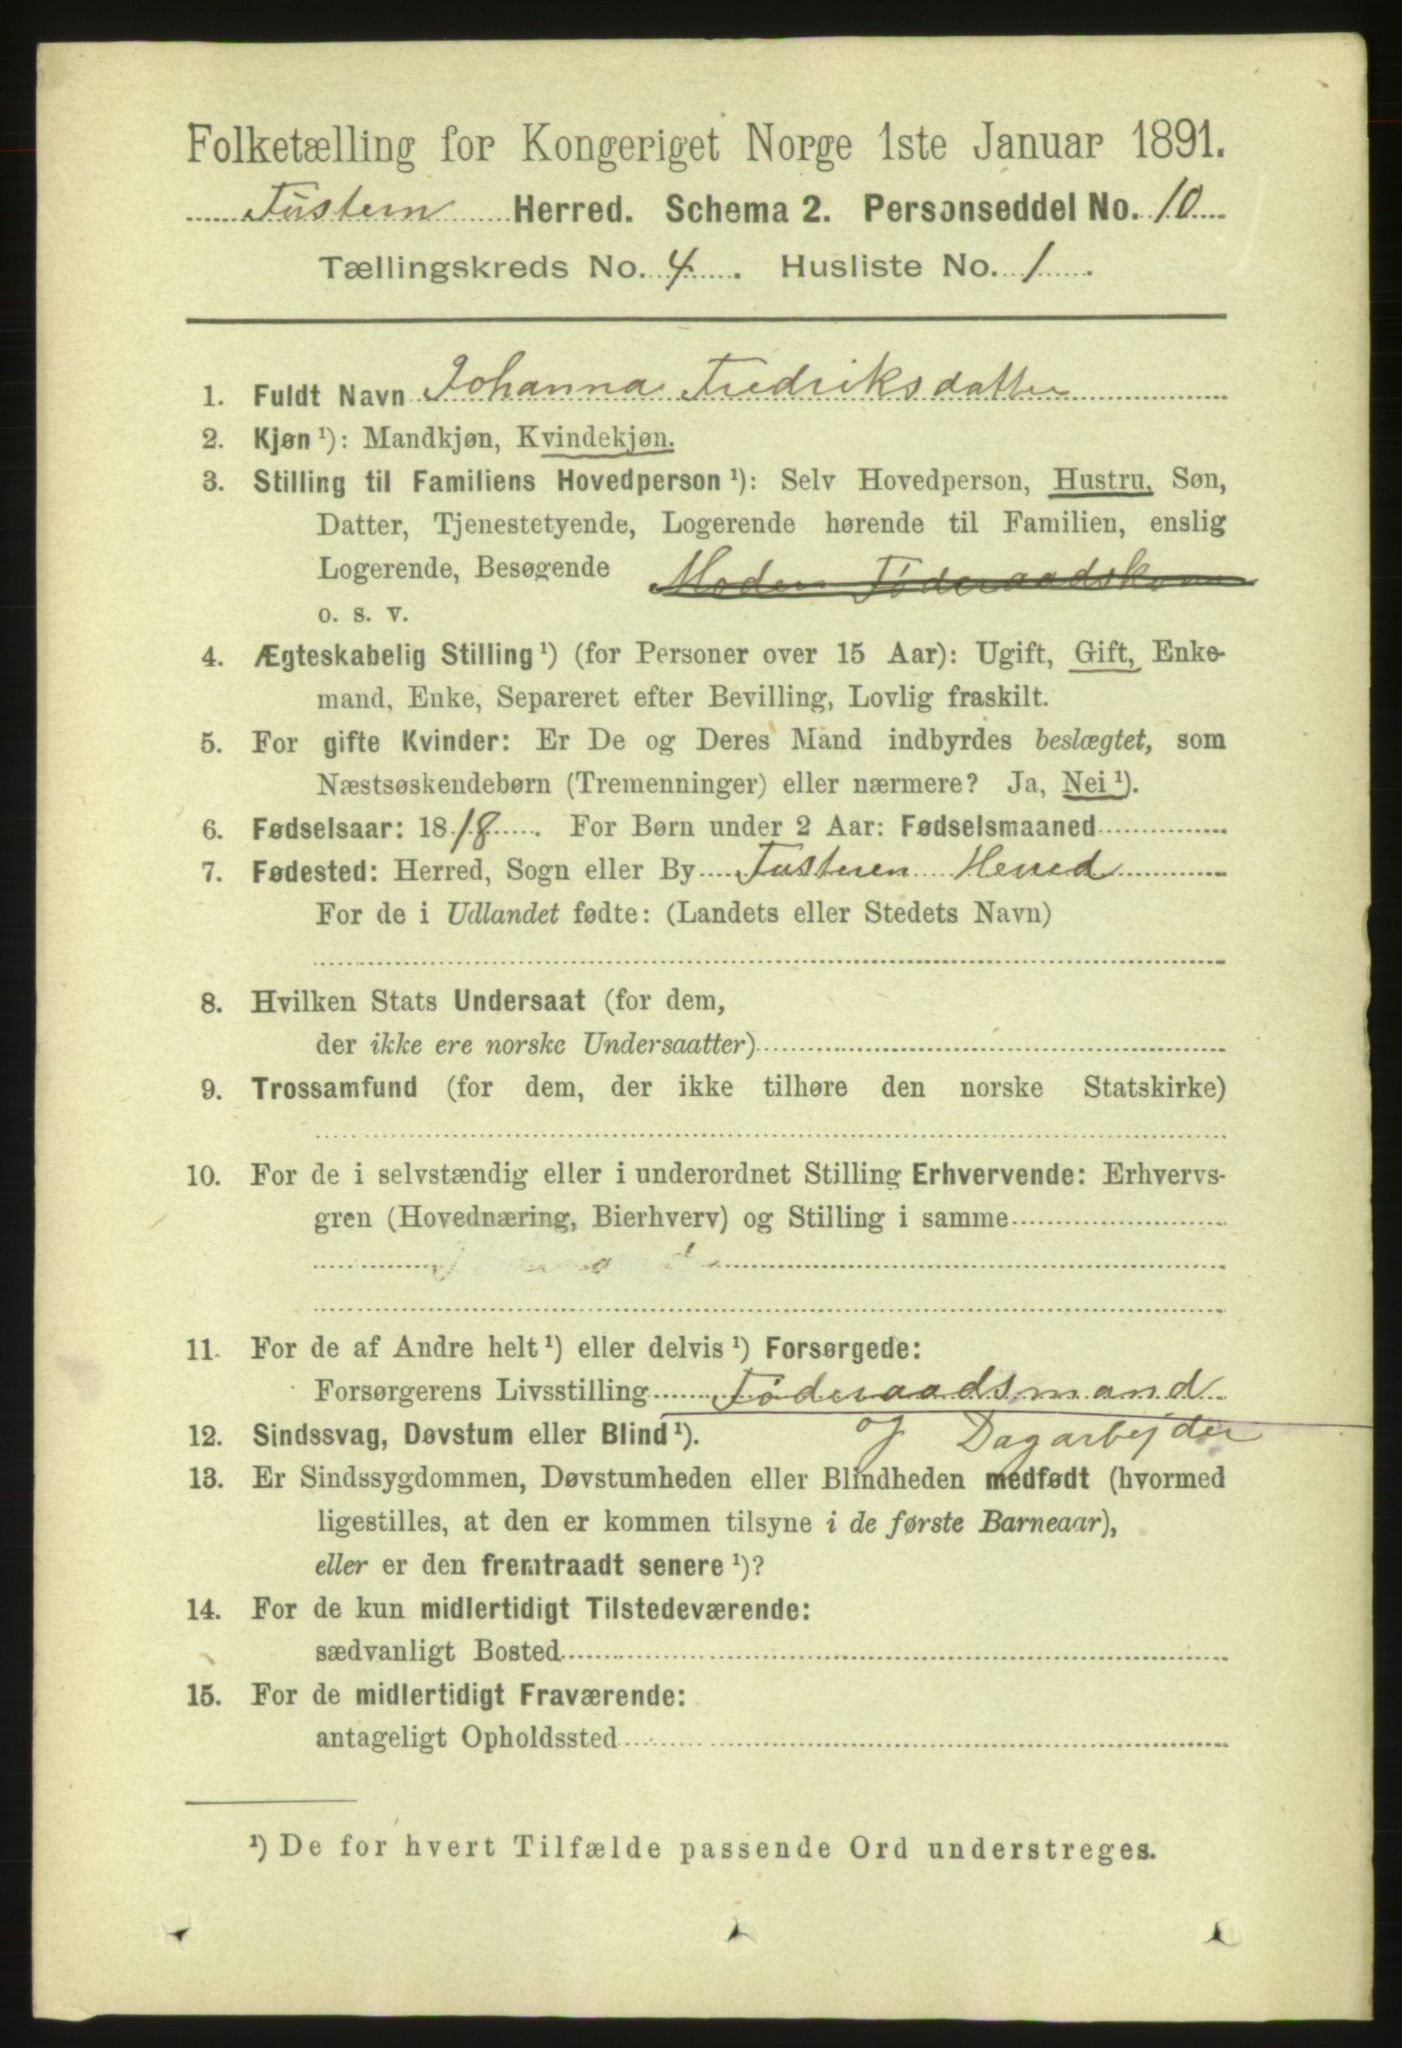 Folketælling for Kongeriget Norge 1ste Januar 1891.
Tustern Herred. Schema 2. Personseddel No. 10
Tællingskreds No. 4. Husliste No. 1.
1. Fuldt Navn Johanna Fredriksdatter
2. Kjøn ¹): Mandkjøn, Kvindekjøn.
3. Stilling til Familiens Hovedperson ¹): Selv Hovedperson, Hustru, Søn,
Datter, Tjenestetyende, Logerende hørende til Familien, enslig
Logerende, Besøgende Moder Føderaadskone
o. s. v.
4. Ægteskabelig Stilling ¹) (for Personer over 15 Aar): Ugift, Gift, Enke-
mand, Enke, Separeret efter Bevilling, Lovlig fraskilt.
5. For gifte Kvinder: Er De og Deres Mand indbyrdes beslægtet, som
Næstsøskendebørn (Tremenninger) eller nærmere? Ja, Nei ¹).
6. Fødselsaar: 1818. For Børn under 2 Aar: Fødselsmaaned
7. Fødested: Herred, Sogn eller By Tusteren Herred
For de i Udlandet fødte: (Landets eller Stedets Navn)
8. Hvilken Stats Undersaat (for dem,
der ikke ere norske Undersaatter)
9. Trossamfund (for dem, der ikke tilhøre den norske Statskirke)
10. For de i selvstændig eller i underordnet Stilling Erhvervende: Erhvervs-
gren (Hovednæring, Bierhverv) og Stilling i samme
11. For de af Andre helt ¹) eller delvis ¹) Forsørgede:
Forsørgerens Livsstilling Føderaadsmand
og Dagarbejder
12. Sindssvag, Døvstum eller Blind ¹).
13. Er Sindssygdommen, Døvstumheden eller Blindheden medfødt (hvormed
ligestilles, at den er kommen tilsyne i de første Barneaar),
eller er den fremtraadt senere ¹)?
14. For de kun midlertidigt Tilstedeværende:
sædvanligt Bosted
15. For de midlertidigt Fraværende:
antageligt Opholdssted
¹) De for hvert Tilfælde passende Ord understreges.